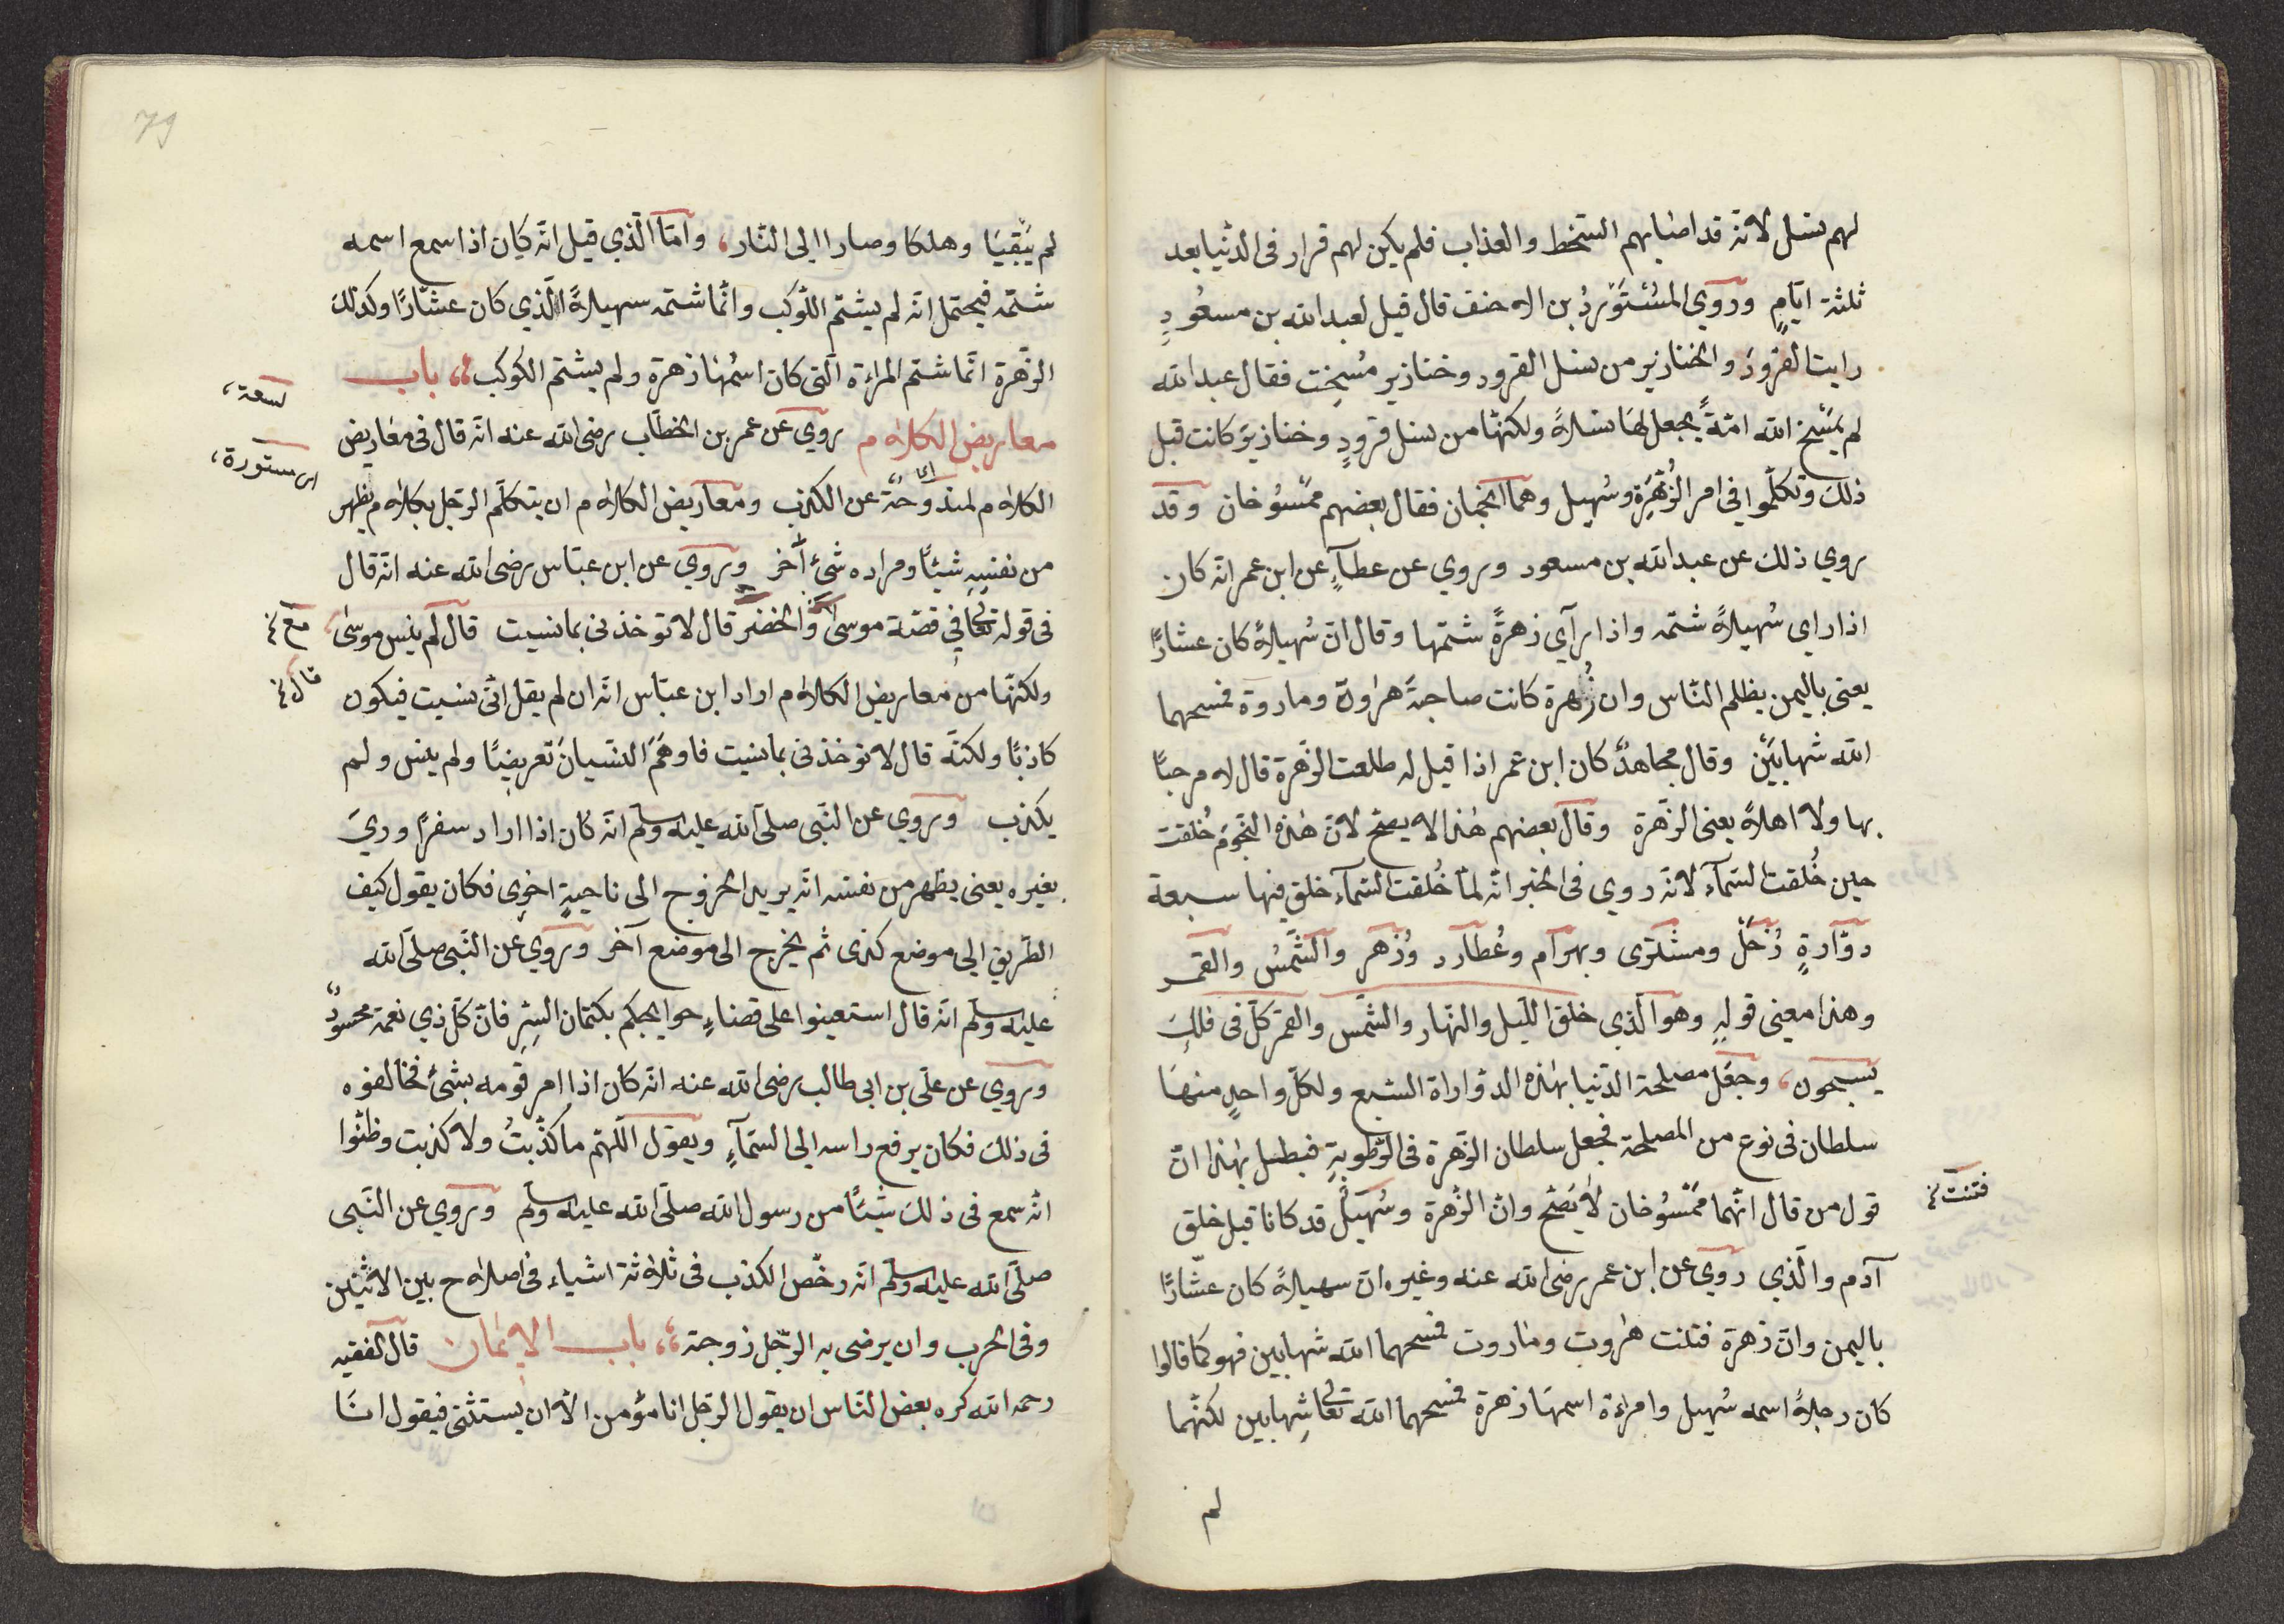 لهم نسل لانّه قد اصابهم السّخط والعذاب فلم يكن لهم قرار فى الدّنيا بعد
ثلثة ايّامٍ وروي المُسْتَوْرِدُ بن الاحنف قال قيل لعبد الله بن مسعُودٍ
رايت القرودَ والخنازير من نسل القرود وخنازير مُسِخت فقال عبد الله
لم يَمْسَخ الله امّةً يجعل لها نسلاً ولكنّها من نسل قرودٍ وخنازيرَ كانت قبل
ذلك وتكلّموا في امر الزُّهَرَة وسُهيل وهما النجمان فقال بعضهم ممْسُوخان وقد
روي ذلك عن عبد الله بن مسعود وروي عن عطآءٍ عن ابن عمر انّه كان
اذا راى سُهيلاً شتمه واذا رآى زهرةً شتمها وقال انّ سُهيلاً كان عشارًا
يعنى باليمن يظلم النّاس وان زُهرة كانت صاحبةَ هٰروة وماروة فمسخهما
الله شهابَيْن وقال مجاهدٌ كان ابن عمر اذا قيل له طلعت الزّهرة قال لا مرحبًا
بها ولا اهلاً يعنى الزّهرة وقال بعضهم هٰذا لا يصحّ لانّ هٰذه النّجومَ خُلقت
حين خُلقت السّمآء لانّه روي فى الخبر انّه لمّا خُلقت السّمآء خلق فيها سبعة
دوّارةٍ زُحَلُ ومشترى وبهرام وعُطارد وزُهر والشّمسُ والقمر
وهذا معنى قولِه وهو الّذي خلق اللّيل والنّهار والشّمس والقمر كلّ فى فلكٍ
يسبحون، وجَعَل مصلحة الدّنيا بهٰذه الدوّاراة السّبع ولكلّ واحدٍ منها
سلطان فى نوع من المصلحة فجعل سلطان الزّهرة فى الرّطوبةِ فبطل بهٰذا انّ
قول من قال انّهما ممْسُوخان لا يَصْحّ وانّ الزّهرة وسُهَيلٌ قد كانا قبل خلق
فتنت
آدم والّذي روي عن ابن عمر رضى الله عنه وغيره انّ سهيلاً كان عشّارًا
باليمن وانّ زهرة فتنت هٰروت وماروت فمسخهما الله شهابين فهو كما قالوا
كان رجلاً اسمه سُهيل وامراءة اسمها زهرة فمسخهما الله تعالى شهابين لكنّهما
لم
79
لم يَبْقيَا وهلكا وصارا الى النّار، وامّا الّذي قيل انّه كان اذا سمع اسمه
شتمّه فيحتمل انّه لم يشتم الكوكب وانّما شتمه سهيلاً الّذي كان عشّارًا وكذلك
الزّهرة انّما شتم المراءة الّتى كان اسْمُها زهرة ولم يشتم الكوكب، باب
معاريض الكلام روي عن عمر بن الخطّاب رضى الله عنه انّه قال فى معاريض
سعة،
الكلام لمندوحة عن الكذب ومعاريض الكلام ان يتكلّم الرّجل بكلام يظهر
اى
مستورة،
من نفسِه شيئًا ومراده شئ آخر وروي عن ابن عبّاس رضى الله عنه انّه قال
فى قوله تعالى فى قصّة موسى والخضر قال لا تؤخذنى بما نسيت قال لم ينس موسٰى
مع
ولكنّها من معاريض الكلام اراد ابن عبّاس انّه ان لم يقل انّى نسيت فيكون
قال
كاذبًا ولكنّه قال لا تؤخذنى بما نسيت فاوهَمَ النسيانَ تعريضًا ولم ينس ولم
يكذب وروي عن النّبى صلّى الله عليه وسلّم انّه كان اذا اراد سفرًا وريَ
بغيره يعنى يظهر من نفسه انّه يريد الخروج الى ناحيةٍ اخرٰى فكان يقول كيف
الطّريق الى موضع كذى ثم يخرج الى موضع آخر وروي عن النّبى صلّى الله
عليه وسلّم انّه قال استعينوا على قضاءِ حوايجكم بكتمان السّرِ فانّ كلّ ذي نعمة محسودٌ
وروي عن علّى بن ابى طالب رضى الله عنه انّه كان اذا امر قومه بشئ فخالفوه
فى ذلك فكان يرفع راسه الى السّمآءِ ويقول اللّهمّ ما كَذّبتُ ولا كذبت وظنّوا
انّه سمع فى ذلك شيئًا من رسول الله صلّى الله عليه وسلّم وروي عن النّبى
صلّى الله عليه وسلّم انّه رخّص الكذب فى ثلاثة اشياء فى اصلاح بين الاثنين
وفى الحرب وان يرضى به الرّجل زوجته، باب الايمان قال الفقيه
رحمه الله كره بعض النّاس ان يقول الرّجل انا مؤمن الّا ان يستثنى فيقول انا